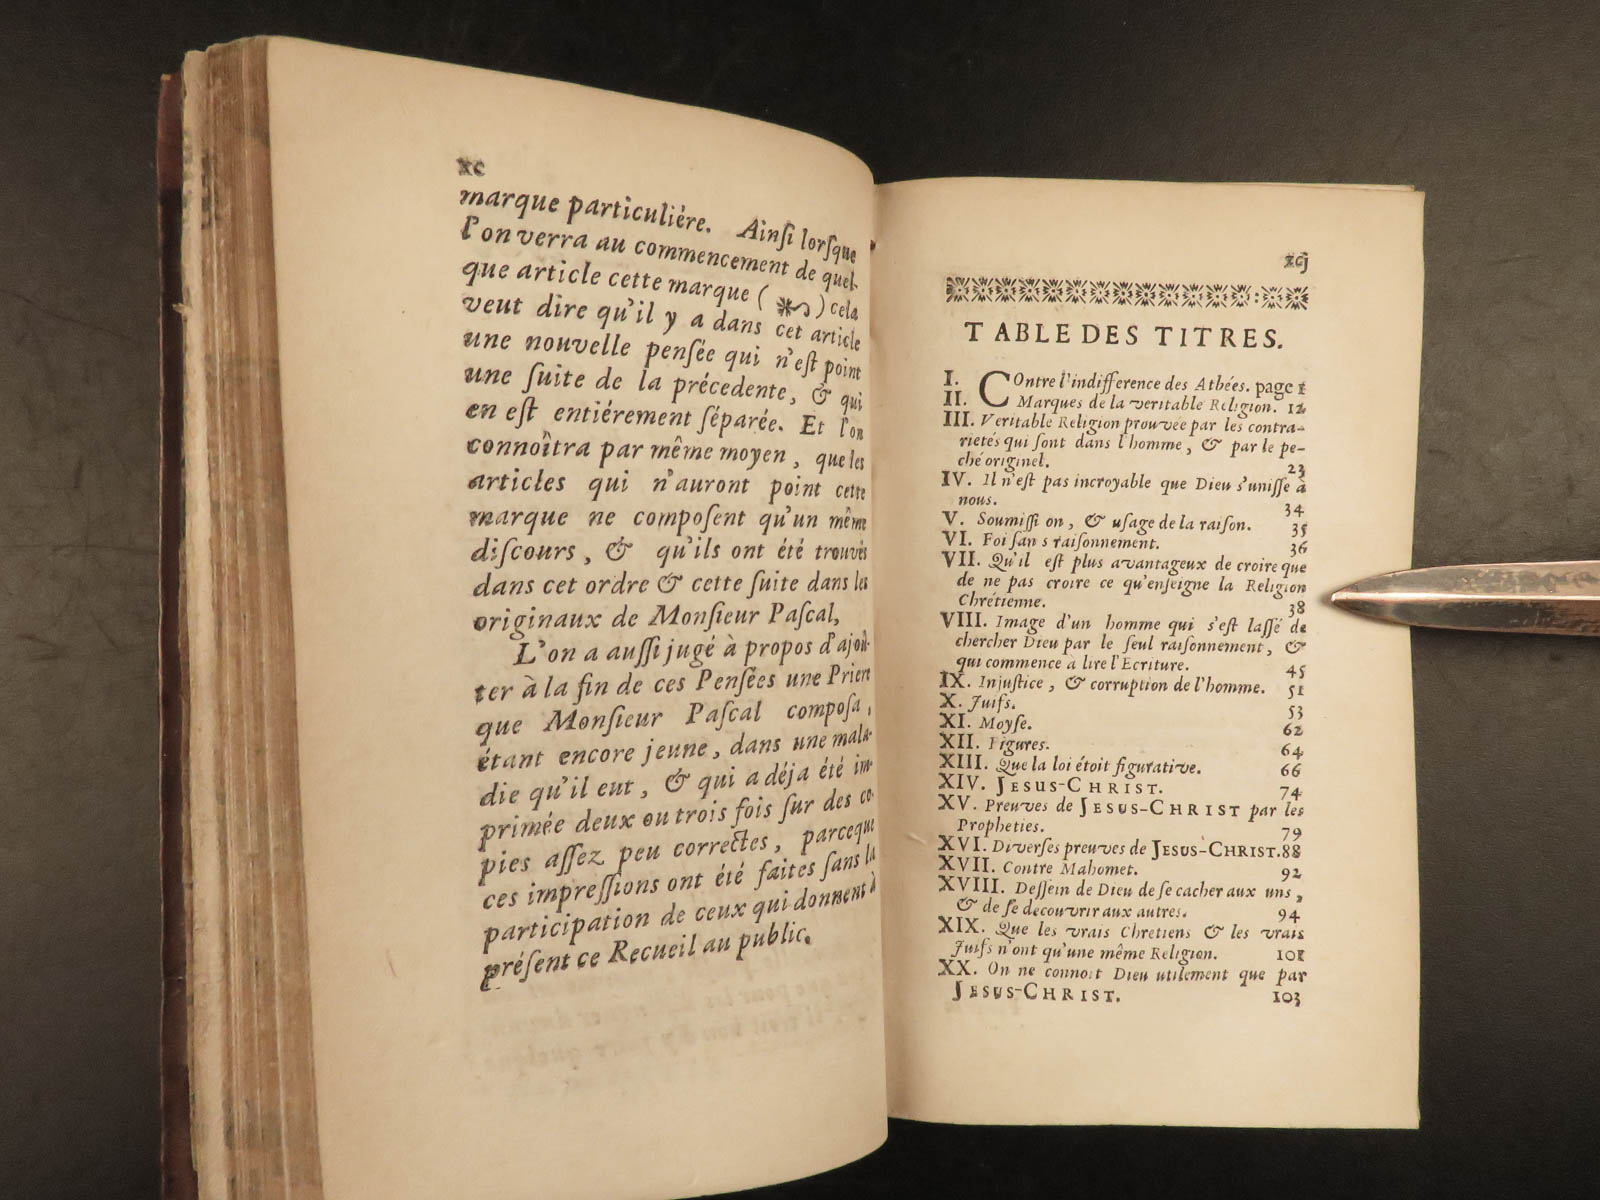 xc
marque particuliére. Ainſi lorſque
l'on verra au commencement de quel-
que article cette marque ( ) cela
veut dire qu'il y a dans cet article
une nouvelle penſée qui n'eſt point
une ſuite de la précedente, & qui
en eſt entiérement ſéparée. Et l'on
connoîtra par même moyen, que les
articles qui n'auront point cette
marque ne compoſent qu'un même
diſcours, & qu'ils ont été trouvés
dans cet ordre & cette ſuite dans les
originaux de Monſieur Paſcal,
L'on a auſſi jugé à propos d'ajoû-
ter à la fin de ces Penſées une Priere
que Monſieur Paſcal compoſa,
étant encore jeune, dans une mala-
die qu'il eut, & qui a déja été im-
primée deux ou trois fois ſur des co-
pies aſſez peu correctes, parceque
ces impreſſions ont été faites ſans la
participation de ceux qui donnent à
préſent ce Recueil au public.
xcj
TABLE DES TITRES.
I. COntre l'indifference des Athées. page 1
II. Marques de la veritable Religion. 12
III. Veritable Religion prouvée par les contra-
rietés qui ſont dans l'homme, & par le pe-
ché originel. 23
IV. Il n'eſt pas incroyable que Dieu s'uniſſe à
nous. 34
V. Soumiſſion, & uſage de la raiſon. 35
VI. Foi ſans raiſonnement. 36
VII. Qu'il eſt plus avantageux de croire que
de ne pas croire ce qu'enſeigne la Religion
Chrétienne. 38
VIII. Image d'un homme qui s'eſt laſſé de
chercher Dieu par le ſeul raiſonnement, &
qui commence a lire l'Ecriture. 45
IX. Injuſtice, & corruption de l'homme. 51
X. Juifs. 53
XI. Moyſe. 62
XII. Figures. 64
XIII. Que la loi étoit figurative. 66
XIV. JESUS-CHRIST. 74
XV. Preuves de JESUS-CHRIST par les
Propheties. 79
XVI. Diverſes preuves de JESUS-CHRIST. 88
XVII. Contre Mahomet. 92
XVIII. Deſſein de Dieu de ſe cacher aux uns,
& de ſe decouvrir aux autres. 94
XIX. Que les vrais Chretiens & les vrais
Juifs n'ont qu'une même Religion. 101
XX. On ne connoit Dieu utilement que par
JESUS-CHRIST. 103